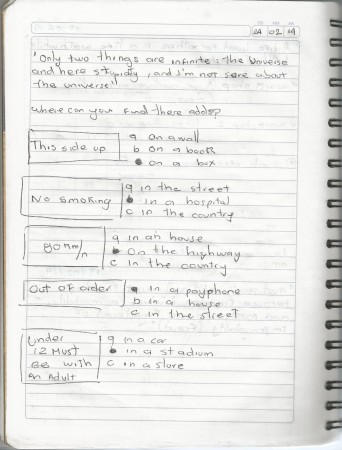 24 02 14
"Only two things are infinite: the Universe
and here stupidly, and I'm not sere about
the universe"
where can you find there adds?
This side up
a on a wall
b on a book
on a box
No smoking
a in the street
b in a hospital
c in the country
80 km/h
a in an house
b On the highway
c in the country
Out of order
a in a payphone
b in a house
c in the street
Under
12 Must
BE with
An Adult
a in a car
b in a stadium
c in a store